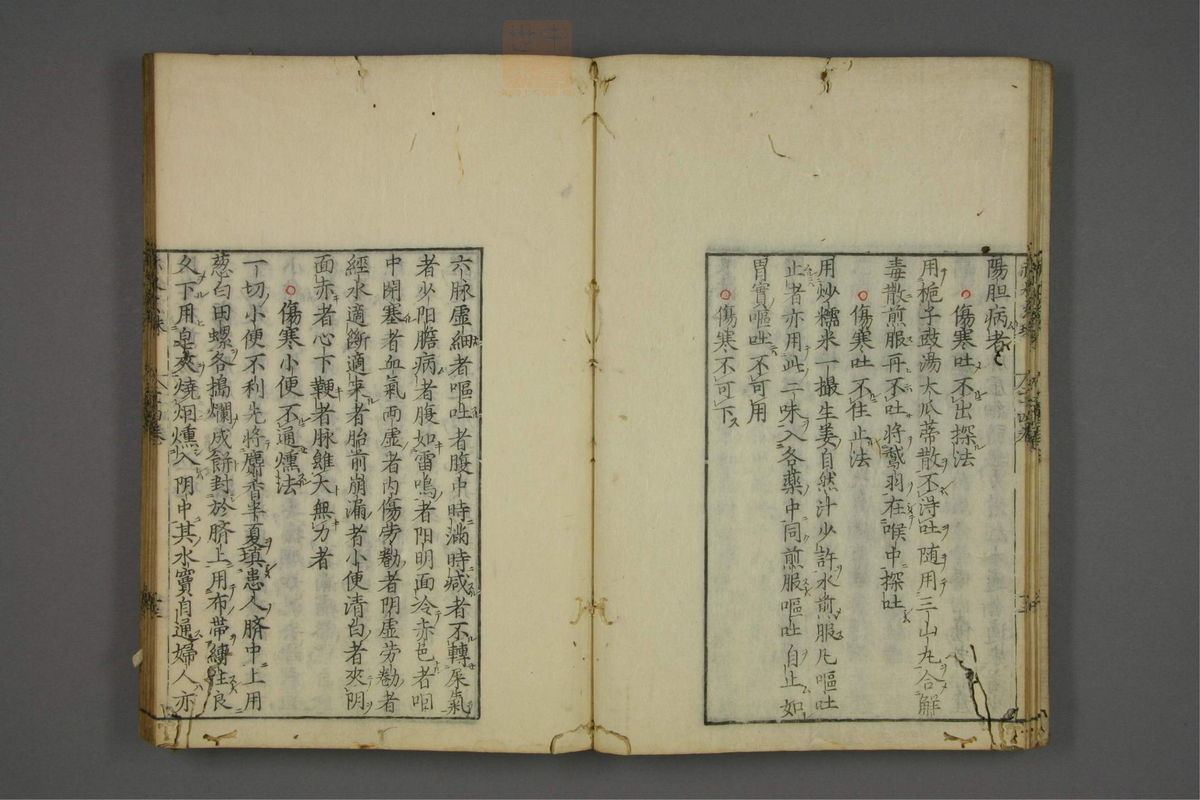 陽胆病者
○傷寒吐不出探法
用梔子豉湯大瓜蒂散不淂吐随用三山丸合解
毒散煎服再不吐将鵞羽在喉中探吐
○傷寒吐不住止法
用炒糯米一撮生姜自然汁少許水煎服凡嘔吐
止者亦用此二味入各薬中同煎服嘔吐自止如
胃實嘔吐不可用
○傷寒不可下
六脉虚細者嘔吐者腹中時滿時减者不轉屎氣
者少阳膽病者腹如雷鳴者阳明面冷赤色者咽
中閉塞者血氣両虚者内傷劳勸者阴虚劳勸者
經水適斷適来者胎前崩漏者小便清白者夾阴
面赤者心下鞕者脉雖大無力者
○傷寒小便不通燻法
一切小便不利先将麝香半夏瑱患人臍中上用
葱白田螺各搗爛成餅封於臍上用布帯縛住良
久下用皂夾燒烟燻入阴中其水竇自通婦人亦